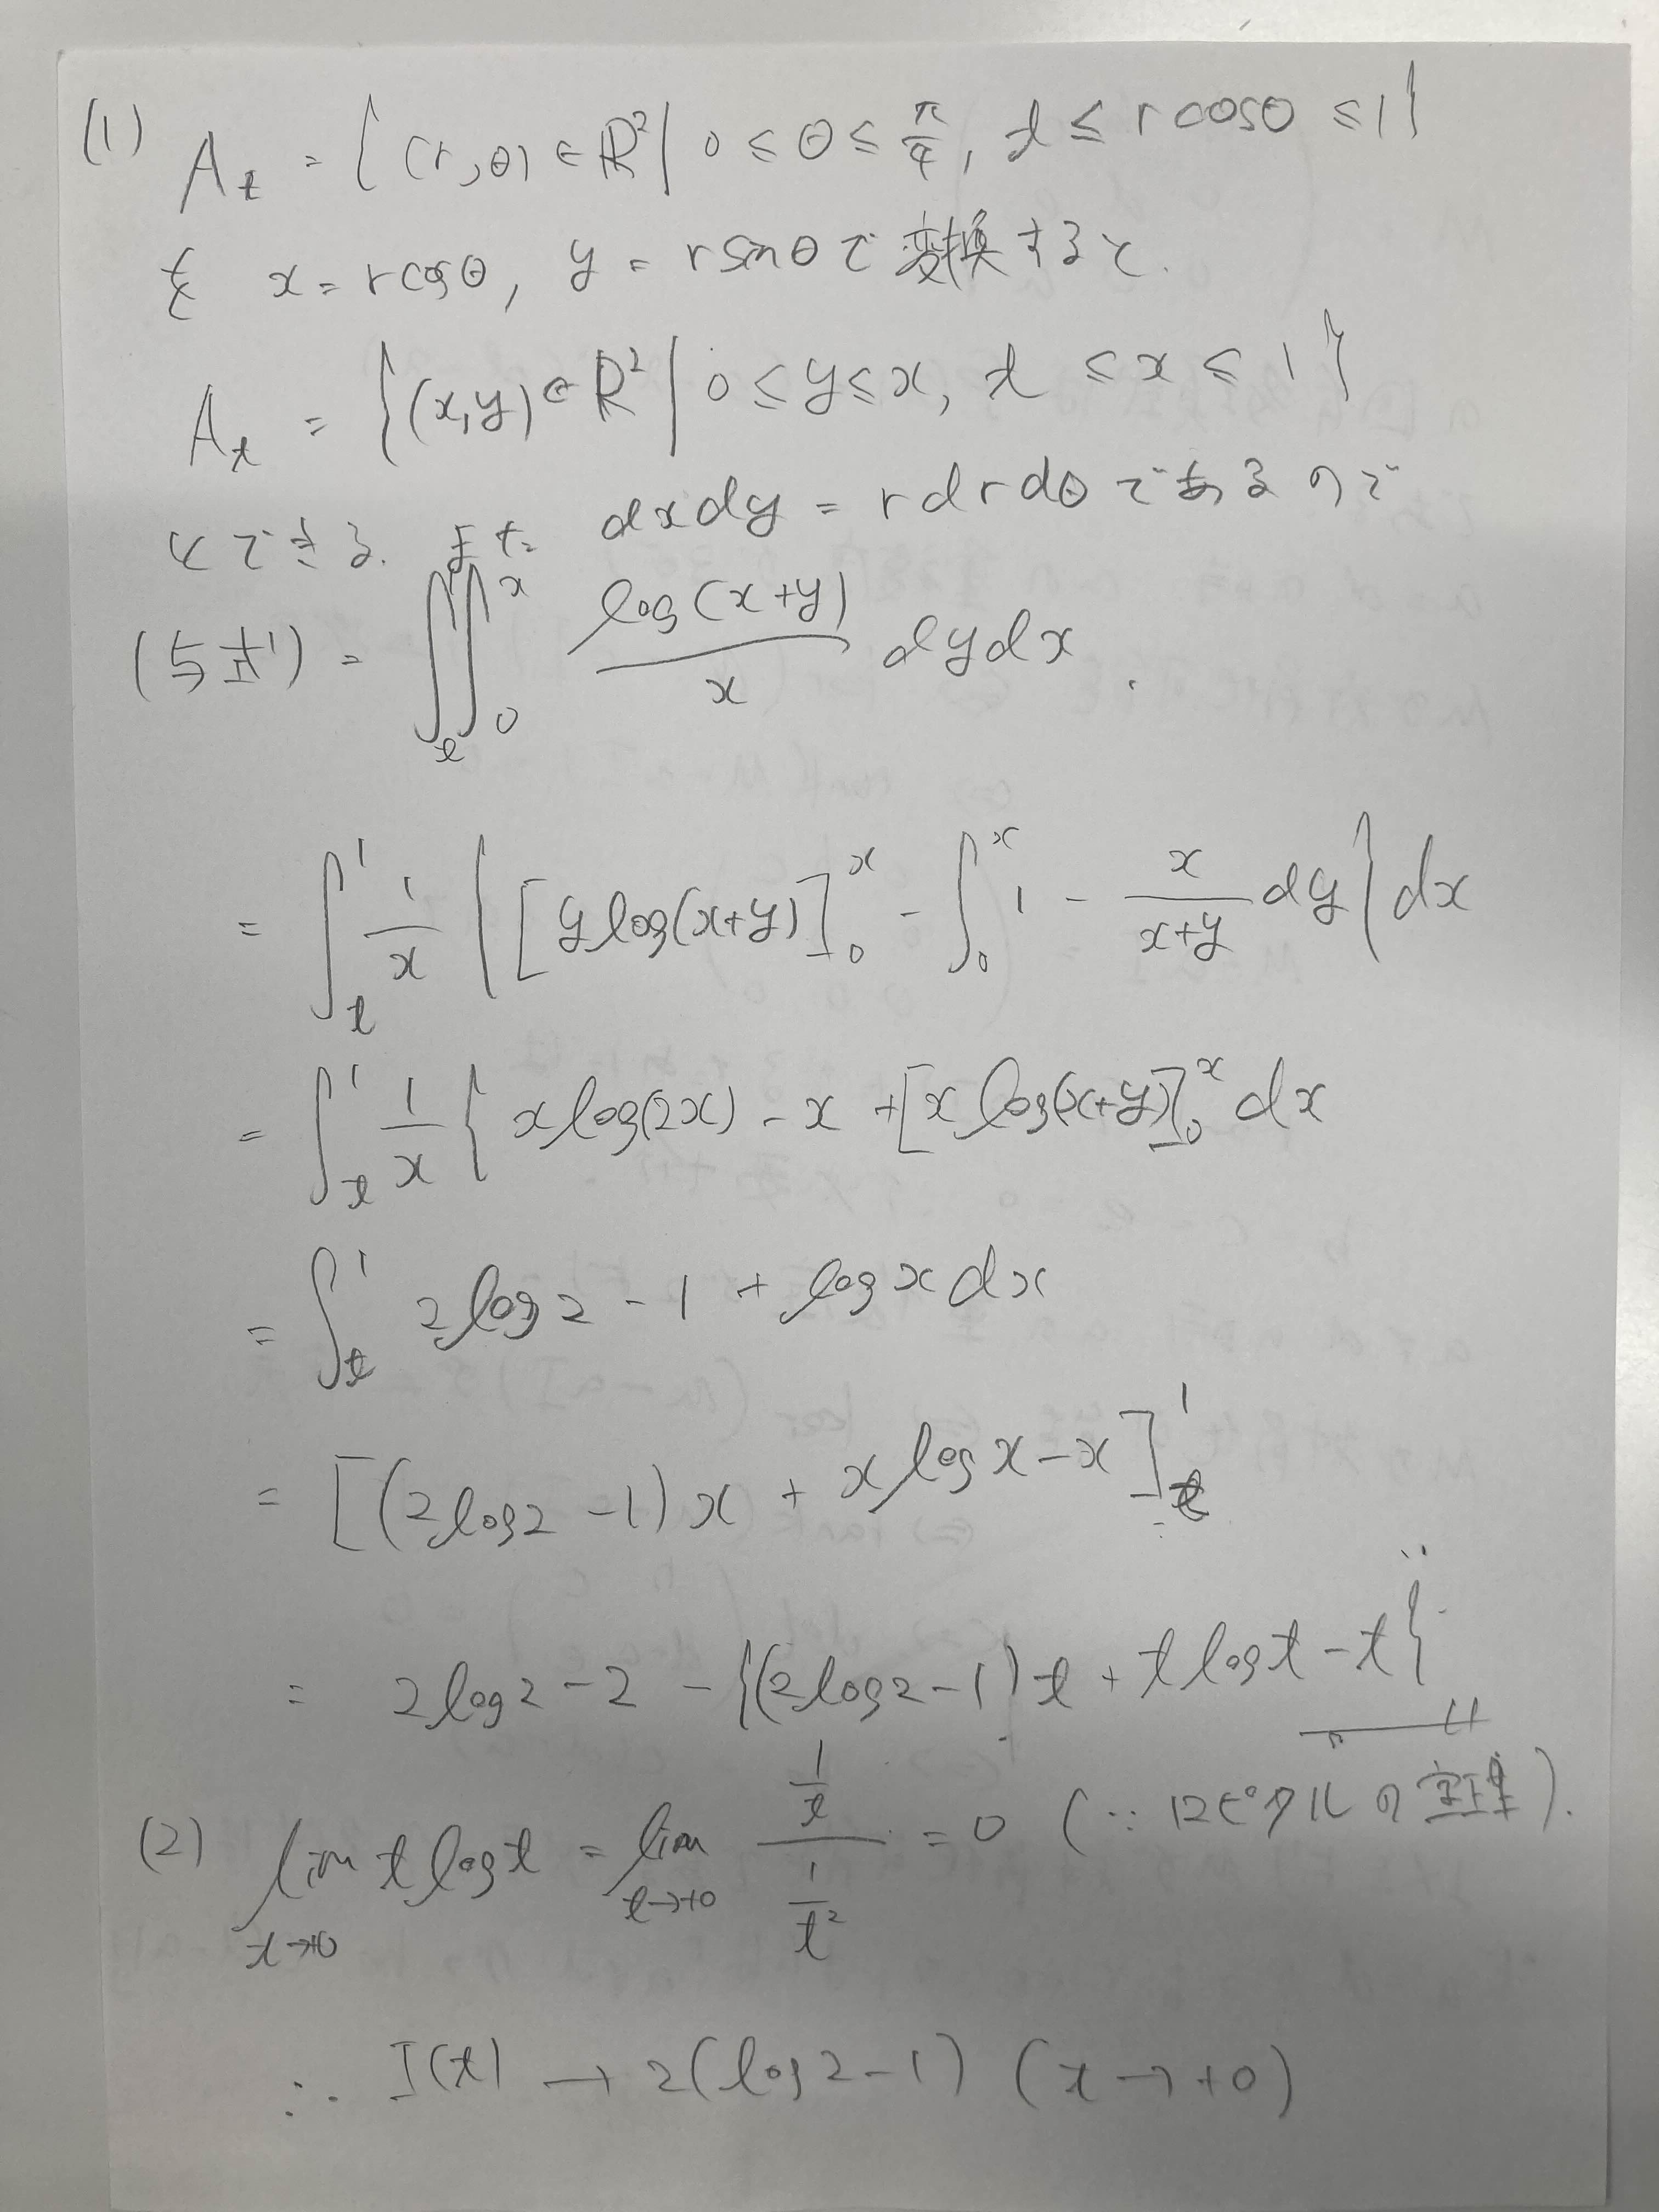 (1) A_t = { (r,θ) ∈ ℝ² | 0 ≤ θ ≤ π/4, t ≤ r cosθ ≤ 1 }
を x = r cosθ, y = r sinθ で 変換すると.
A_t = { (x,y) ∈ ℝ² | 0 ≤ y ≤ x, t ≤ x ≤ 1 }
とできる. また dxdy = r dr dθ であるので
(与式) = ∫_t ∫_0^x log(x+y)/x dydx.
= ∫_t^1 1/x { [y log(x+y)]_0^x - ∫_0^x 1 - x/(x+y) dy } dx
= ∫_t^1 1/x { x log(2x) - x + [x log(x+y)]_0^x dx
= ∫_t^1 2log2 - 1 + log x dx
= [(2log2 - 1)x + x log x - x]_t^1
= 2log2 - 2 - {(2log2 - 1)t + t log t - t}
(2) lim_{t→+0} t log t = lim_{t→+0} (1/t)/(1/t²) = 0 (∵ ロピタルの定理).
∴ I(t) → 2(log2 - 1) (t → +0)